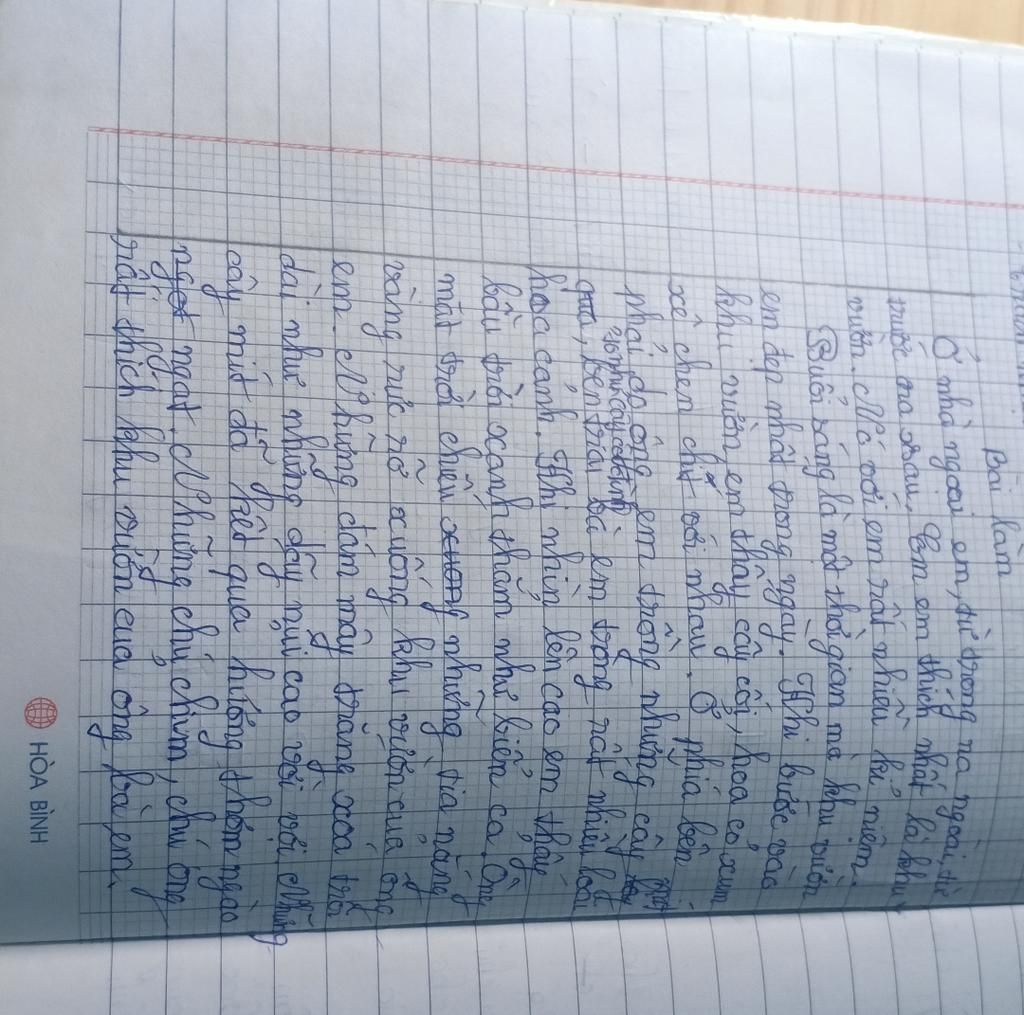 Bài làm
Ở nhà ngoại em, từ trong ra ngoài, từ
trước ra sau. Em em thích nhất là khu
vườn. Nó với em rất nhiều kỉ niệm.
Buổi sáng là một thời gian mà khu vườn
em đẹp nhất trong ngày. Khi bước vào
khu vườn, em thấy cây cối, hoa cỏ xum
xê chen chít với nhau. Ở phía bên
phải do ông em trồng những cây
gồm cây
quả, bên trái bà em trồng rất nhiều loài
hoa cảnh. Khi nhìn lên cao em thấy
bầu trời xanh thẳm như biển cả. Ông
mặt trời chiếu xuống những tia nắng
vàng rực rỡ xuống khu vườn của ông
em. Những đám mây trắng xoá trải
dài như những dãy núi cao vời vợi. Những
cây mít đã kết quả hương thơm ngào
ngọt ngạt. Những chú chim, chú ong
rất thích khu vườn của ông bà em.
HÒA BÌNH